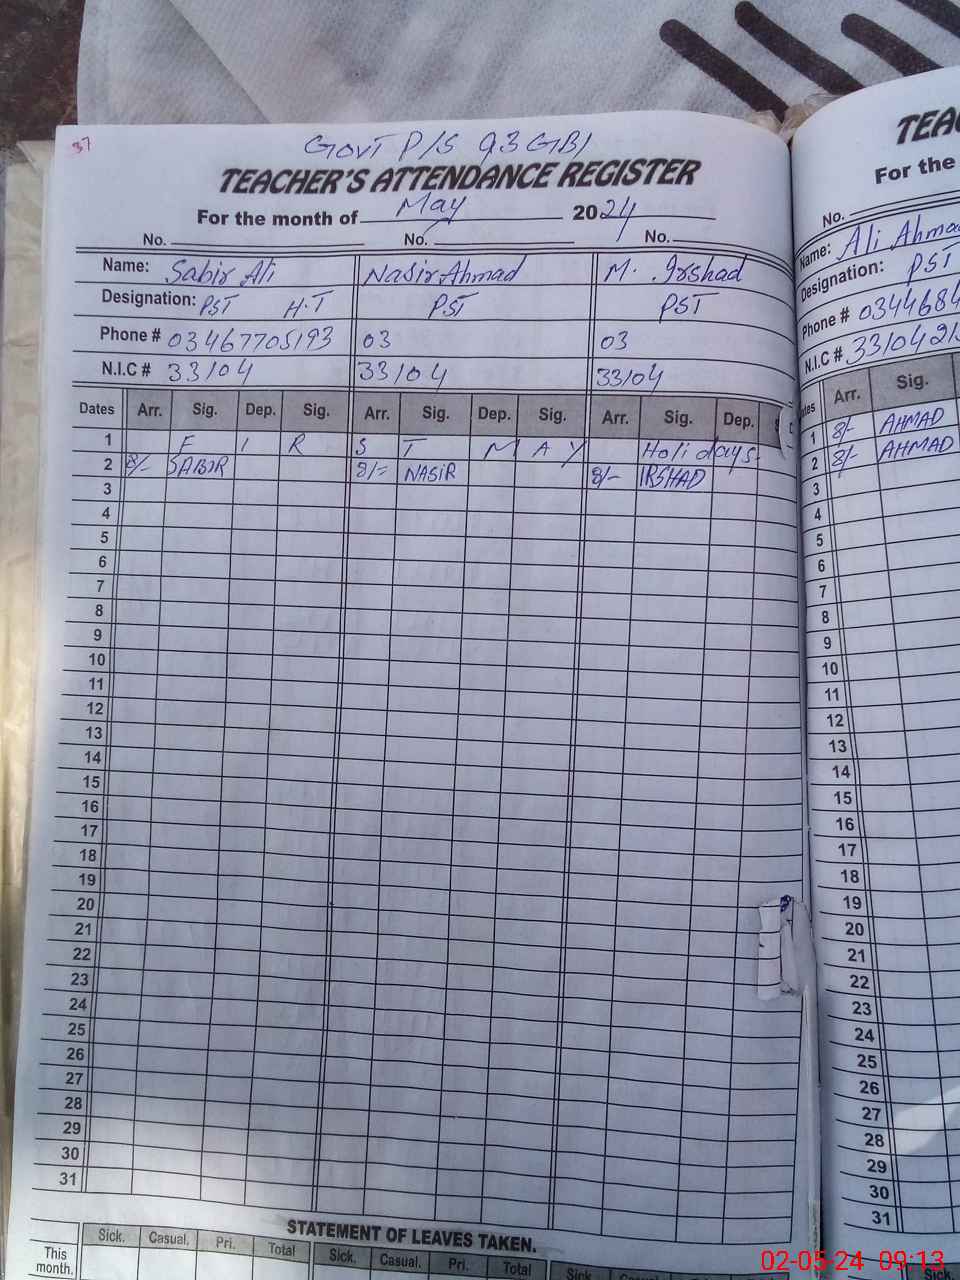 37
GOVT P/S 93 GB1
TEACHER'S ATTENDANCE REGISTER
For the month of May 2024
No. No. No.
Name: Sabir Ali Nasir Ahmad M. Irshad
Designation: PST H.T PST PST
Phone # 03467705193 03 03
N.I.C # 33104 33104 33104
Dates Arr. Sig. Dep. Sig. Arr. Sig. Dep. Sig. Arr. Sig. Dep.
1 F I R S T M A Y Holidays.
2 8/- SABIR 8/= NASIR 8/- IRSHAD
3
4
5
6
7
8
9
10
11
12
13
14
15
16
17
18
19
20
21
22
23
24
25
26
27
28
29
30
31
STATEMENT OF LEAVES TAKEN.
Sick. Casual. Pri. Total Sick. Casual. Pri. Total Sick. Casual.
This
month.
TEA
For the
No.
Name: Ali Ahmad
Designation: PST
Phone # 0344684
N.I.C # 33104
Arr. Sig.
1 8/- AHMAD
2 8/- AHMAD
3
4
5
6
7
8
9
10
11
12
13
14
15
16
17
18
19
20
21
22
23
24
25
26
27
28
29
30
31
Sick.
02-05-24 09:13